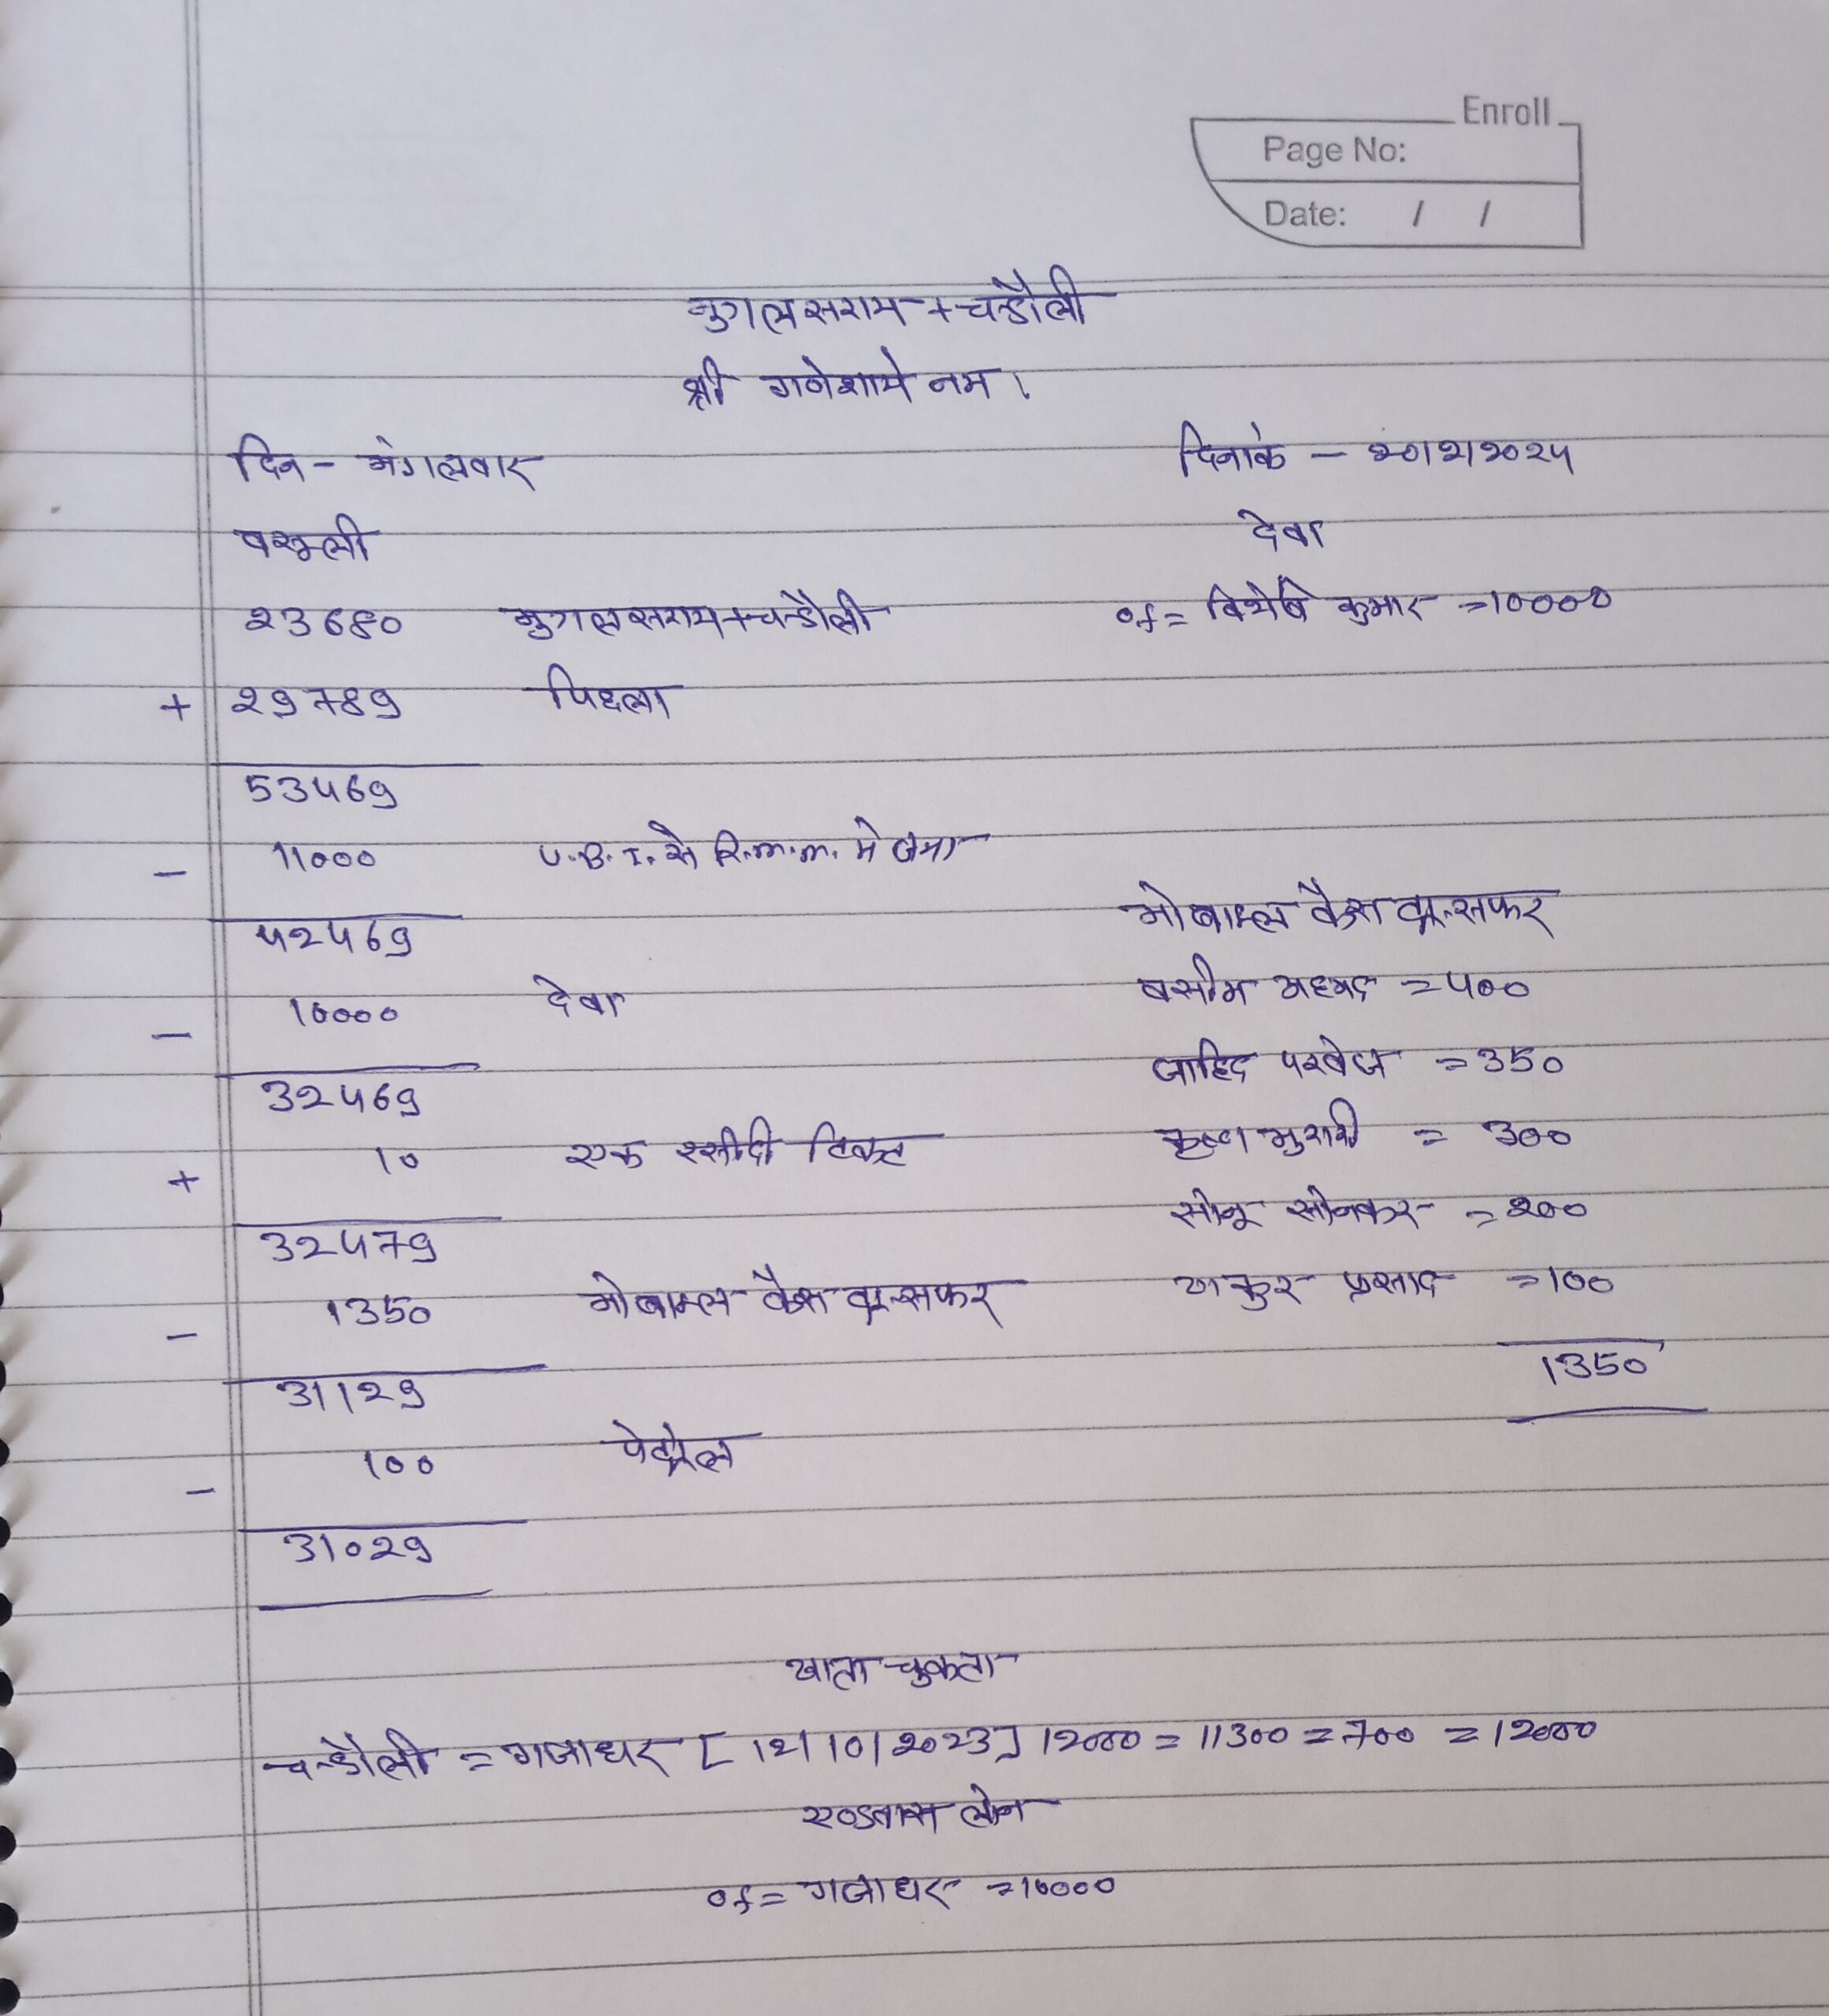 Enroll
Page No:
Date: / /
मुगलसराय + चन्दौली
श्री गणेशाये नम।
दिन - मंगलवार दिनांक - 20/2/2024
वसूली देवा
23680 मुगलसराय + चन्दौली of = कुमार = 10000
+ 29789 पिछला
53469
- 11000 U.B.I. से R.m.m. मे जमा
42469 मोबाइल कैश ट्रान्सफर
- 10000 देवा वसीम अहमद = 400
32469 जाहिद परवेज = 350
+ 10 एक रसीदी टिकट कृष्ण मुरारी = 300
32479 सोनू सोनकर = 200
- 1350 मोबाइल कैश ट्रान्सफर ठाकुर प्रसाद = 100
31129 1350
- 100 पेट्रोल
31029
खाता चुकता
चन्दौली = गजाधर [12/10/2023] 12000 = 11300 = 700 = 12000
एडवांस लोन
of = गजाधर = 10000